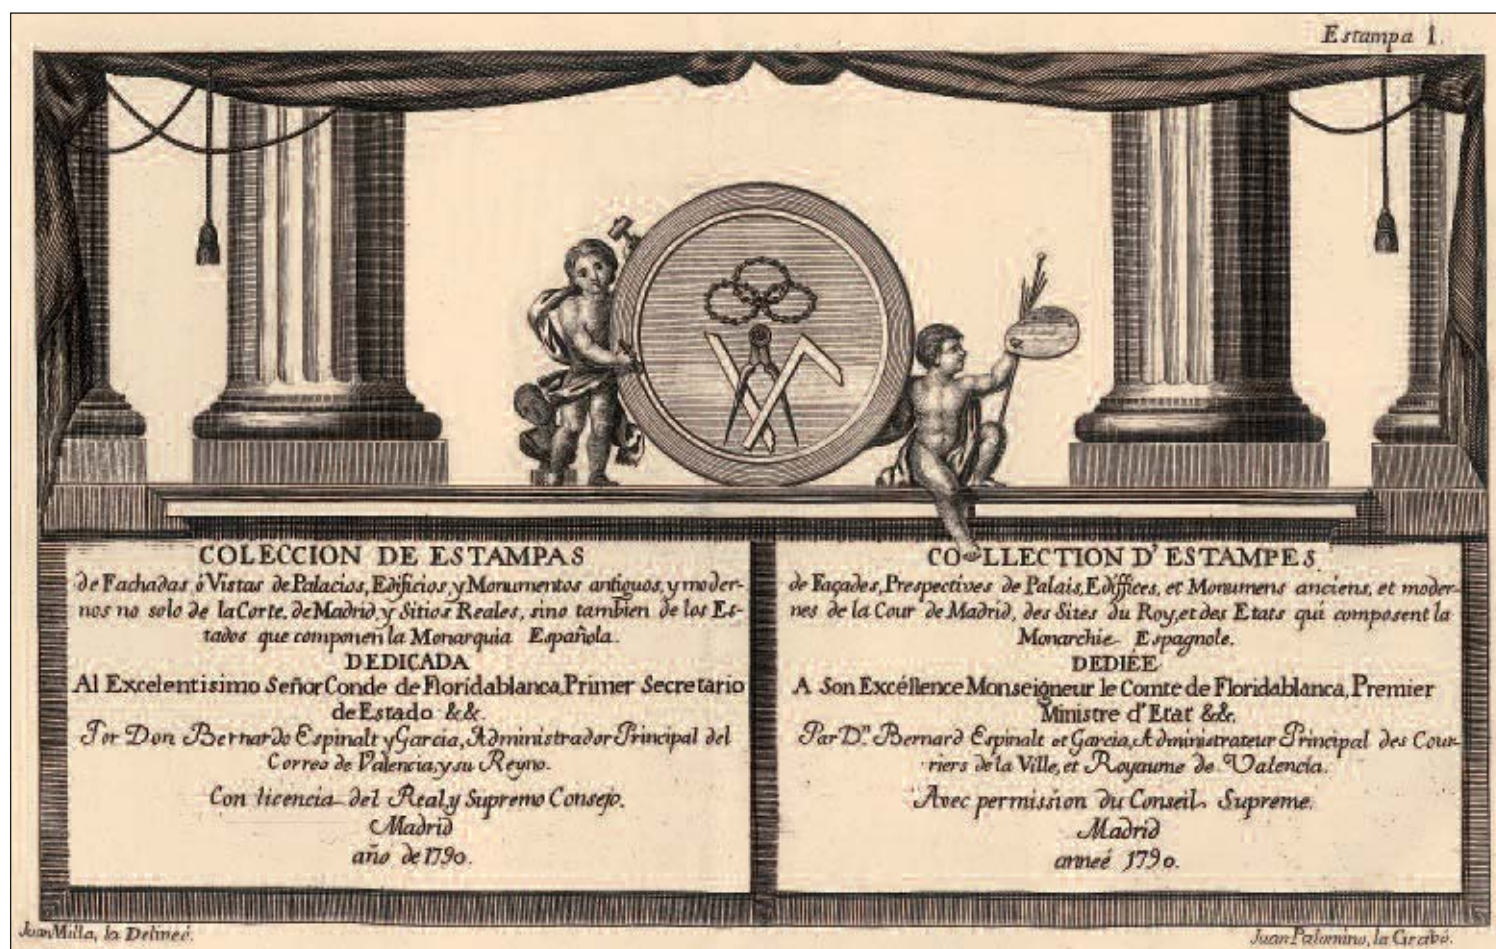 Estampa 1.
COLECCION DE ESTAMPAS
de Fachadas ò Vistas de Palacios, Edificios, y Monumentos antiguos, y moder-
nos no solo de la Corte, de Madrid, y Sitios Reales, sino tambien de los Es-
tados que componen la Monarquia Española.
DEDICADA
Al Excelentisimo Señor Conde de Floridablanca, Primer Secretario
de Estado &&.
Por Don Bernardo Espinalt y Garcia, Administrador Principal del
Correo de Valencia, y su Reyno.
Con licencia del Real, y Supremo Consejo.
Madrid
año de 1790.
COLLECTION D'ESTAMPES
de Façades, Prespectives de Palais, Ediffices, et Monumens anciens, et moder-
nes de la Cour de Madrid, des Sites du Roy, et des Etats qui composent la
Monarchie Espagnole.
DEDIÉE
A Son Excéllence Monseigneur le Comte de Floridablanca, Premier
Ministre d'Etat &&.
Par Dn. Bernard Espinalt et Garcia, Administrateur Principal des Cour-
riers de la Ville, et Royaume de Valencia.
Avec permission du Conseil Supreme.
Madrid
anneé 1790.
Juan Milla, la Delineó.
Juan Palomino, la Grabó.